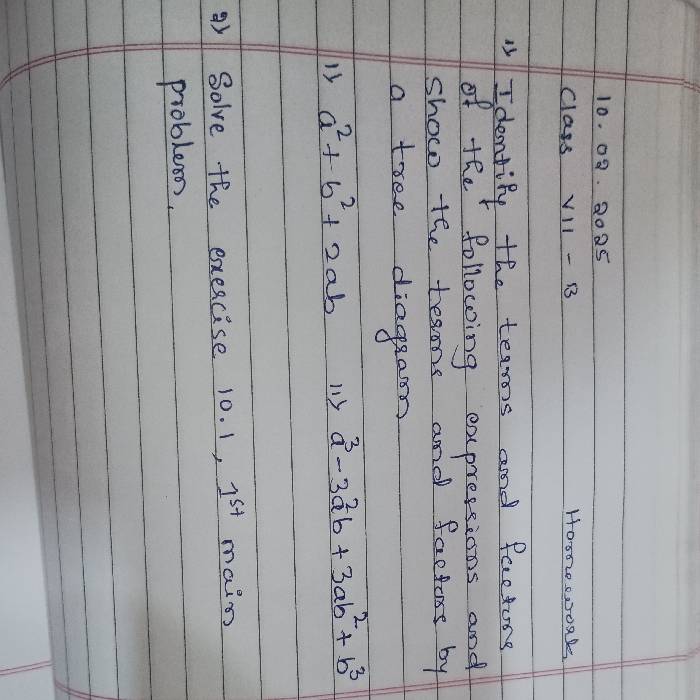 10.02.2025
Class VII - B Homework
1) Identify the terms and factors
of the following expressions and
show the terms and factors by
a tree diagram
i) a² + b² + 2ab ii) a³ - 3a²b + 3ab² + b³
2) Solve the exercise 10.1, 1st main
problem.